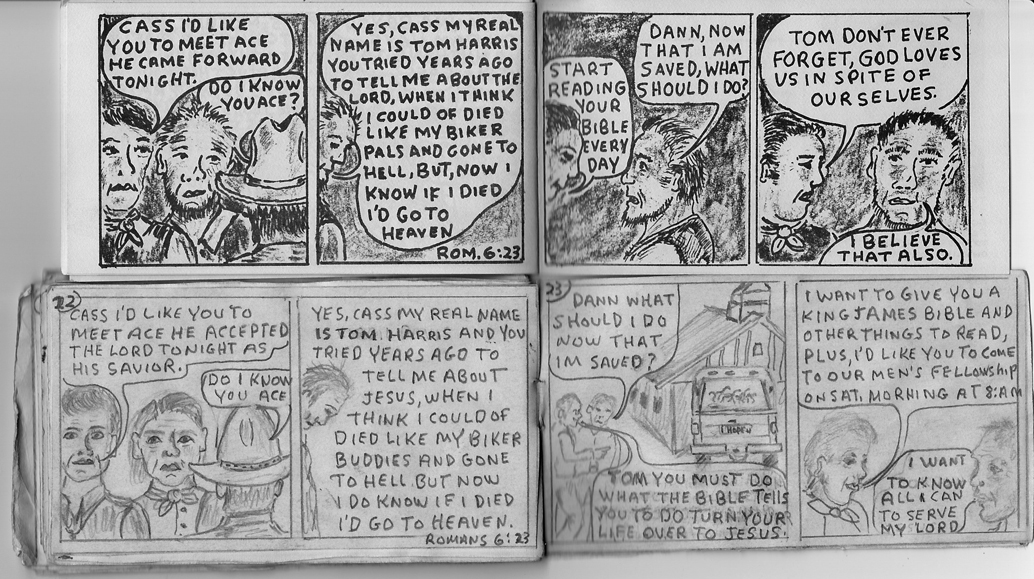 CASS I'D LIKE
YOU TO MEET ACE
HE CAME FORWARD
TONIGHT.
DO I KNOW
YOU ACE?
YES, CASS MY REAL
NAME IS TOM HARRIS
YOU TRIED YEARS AGO
TO TELL ME ABOUT THE
LORD, WHEN I THINK
I COULD OF DIED
LIKE MY BIKER
PALS AND GONE TO
HELL, BUT, NOW I
KNOW IF I DIED
I'D GO TO
HEAVEN
ROM. 6:23
DANN, NOW
THAT I AM
SAVED, WHAT
SHOULD I DO?
START
READING
YOUR
BIBLE
EVERY
DAY
TOM DON'T EVER
FORGET, GOD LOVES
US IN SPITE OF
OURSELVES.
I BELIEVE
THAT ALSO.
22
CASS I'D LIKE YOU TO
MEET ACE HE ACCEPTED
THE LORD TONIGHT AS
HIS SAVIOR.
DO I KNOW
YOU ACE
YES, CASS MY REAL NAME
IS TOM HARRIS AND YOU
TRIED YEARS AGO TO
TELL ME ABOUT
JESUS, WHEN I
THINK I COULD OF
DIED LIKE MY BIKER
BUDDIES AND GONE
TO HELL BUT NOW
I DO KNOW IF I DIED
I'D GO TO HEAVEN.
ROMANS 6:23
23
DANN WHAT
SHOULD I DO
NOW THAT
IM SAVED?
TOM YOU MUST DO
WHAT THE BIBLE TELLS
YOU TO DO TURN YOUR
LIFE OVER TO JESUS.
I WANT TO GIVE YOU A
KING JAMES BIBLE AND
OTHER THINGS TO READ,
PLUS, I'D LIKE YOU TO COME
TO OUR MEN'S FELLOWSHIP
ON SAT. MORNING AT 8:AM
I WANT
TO KNOW
ALL I CAN
TO SERVE
MY LORD